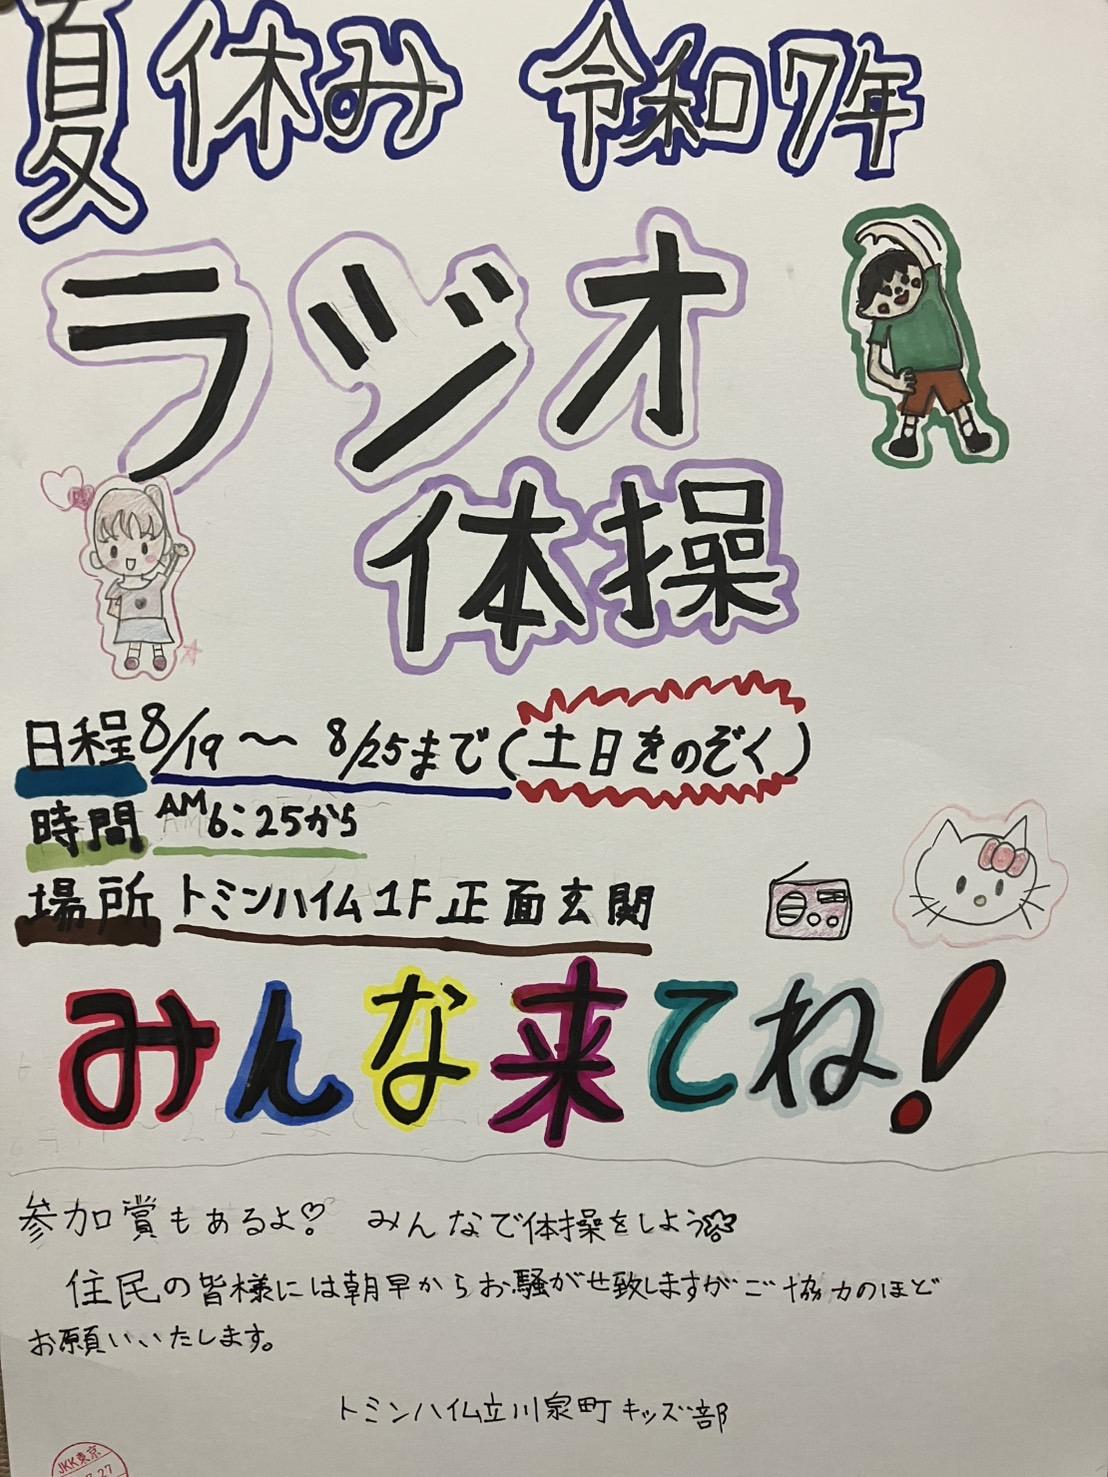 夏休み 令和7年
ラジオ
体操
日程 8/19〜 8/25まで(土日をのぞく)
時間 AM6:25から
場所 トミンハイム1F正面玄関
みんな来てね!
参加賞もあるよ♡ みんなで体操をしよう
住民の皆様には朝早からお騒がせ致しますがご協力のほど
お願いいたします。
トミンハイム立川泉町キッズ部
JKK東京
7.27